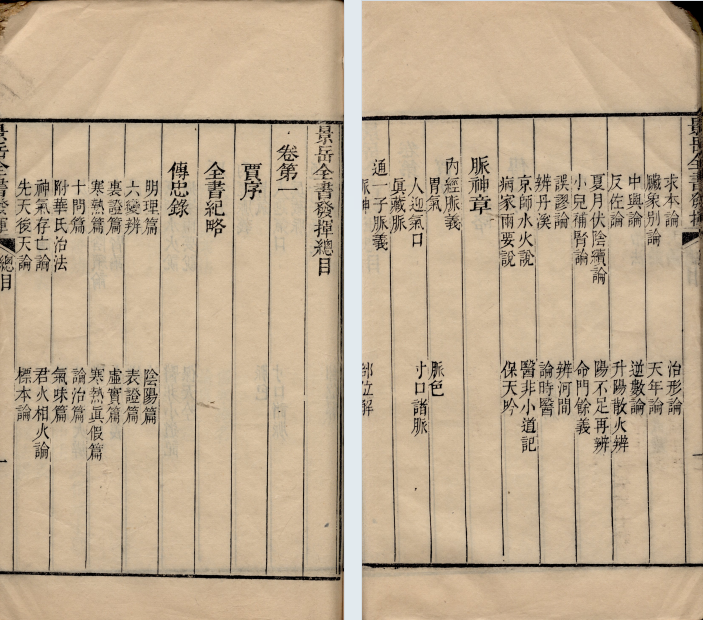 景岳全書發揮總目
卷第一
賈序
全書紀略
傳忠錄
明理篇 陰陽篇
六變辨 表證篇
裏證篇 虛實篇
寒熱篇 寒熱眞假篇
十問篇 論治篇
附華氏治法 氣味篇
神氣存亡論 君火相火論
先天後天論 標本論
景岳全書發揮 總目 一
景岳全書發揮
求本論 治形論
臟象別論 天年論
中興論 逆數論
反佐論 升陽散火辨
夏月伏陰續論 陽不足再辨
小兒補腎論 命門餘義
誤謬論 辨河間
辨丹溪 論時醫
京師水火說 醫非小道記
病家兩要說 保天吟
脈神章
內經脈義
胃氣 脈色
人迎氣口 寸口諸脈
眞藏脈
通一子脈義
脈神 部位解